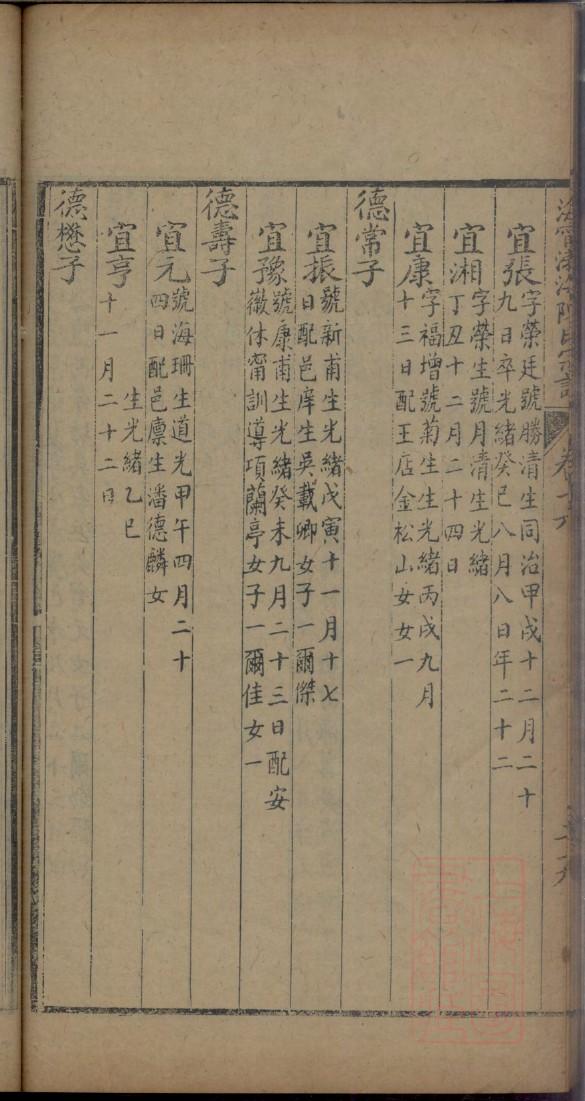 宜張
字榮廷號勝清生同治甲戌十二月二十
九日卒光緒癸巳八月八日年二十二
宜湘
字榮生號月清生光緒
丁丑十二月二十四日
宜康
字福增號菊生生光緒丙戌九月
十三日配王店金松山女女一
德常子
宜振
號新甫生光緒戊寅十一月十七
日配邑庠生吳載卿女子一爾傑
宜豫
號康甫生光緒癸未九月二十三日配安
徽休甯訓導項蘭亭女子一爾佳女一
德壽子
宜元
號海珊生道光甲午四月二十
四日配邑廩生潘德麟女
宜亨
生光緒乙巳
十一月二十二日
德懋子